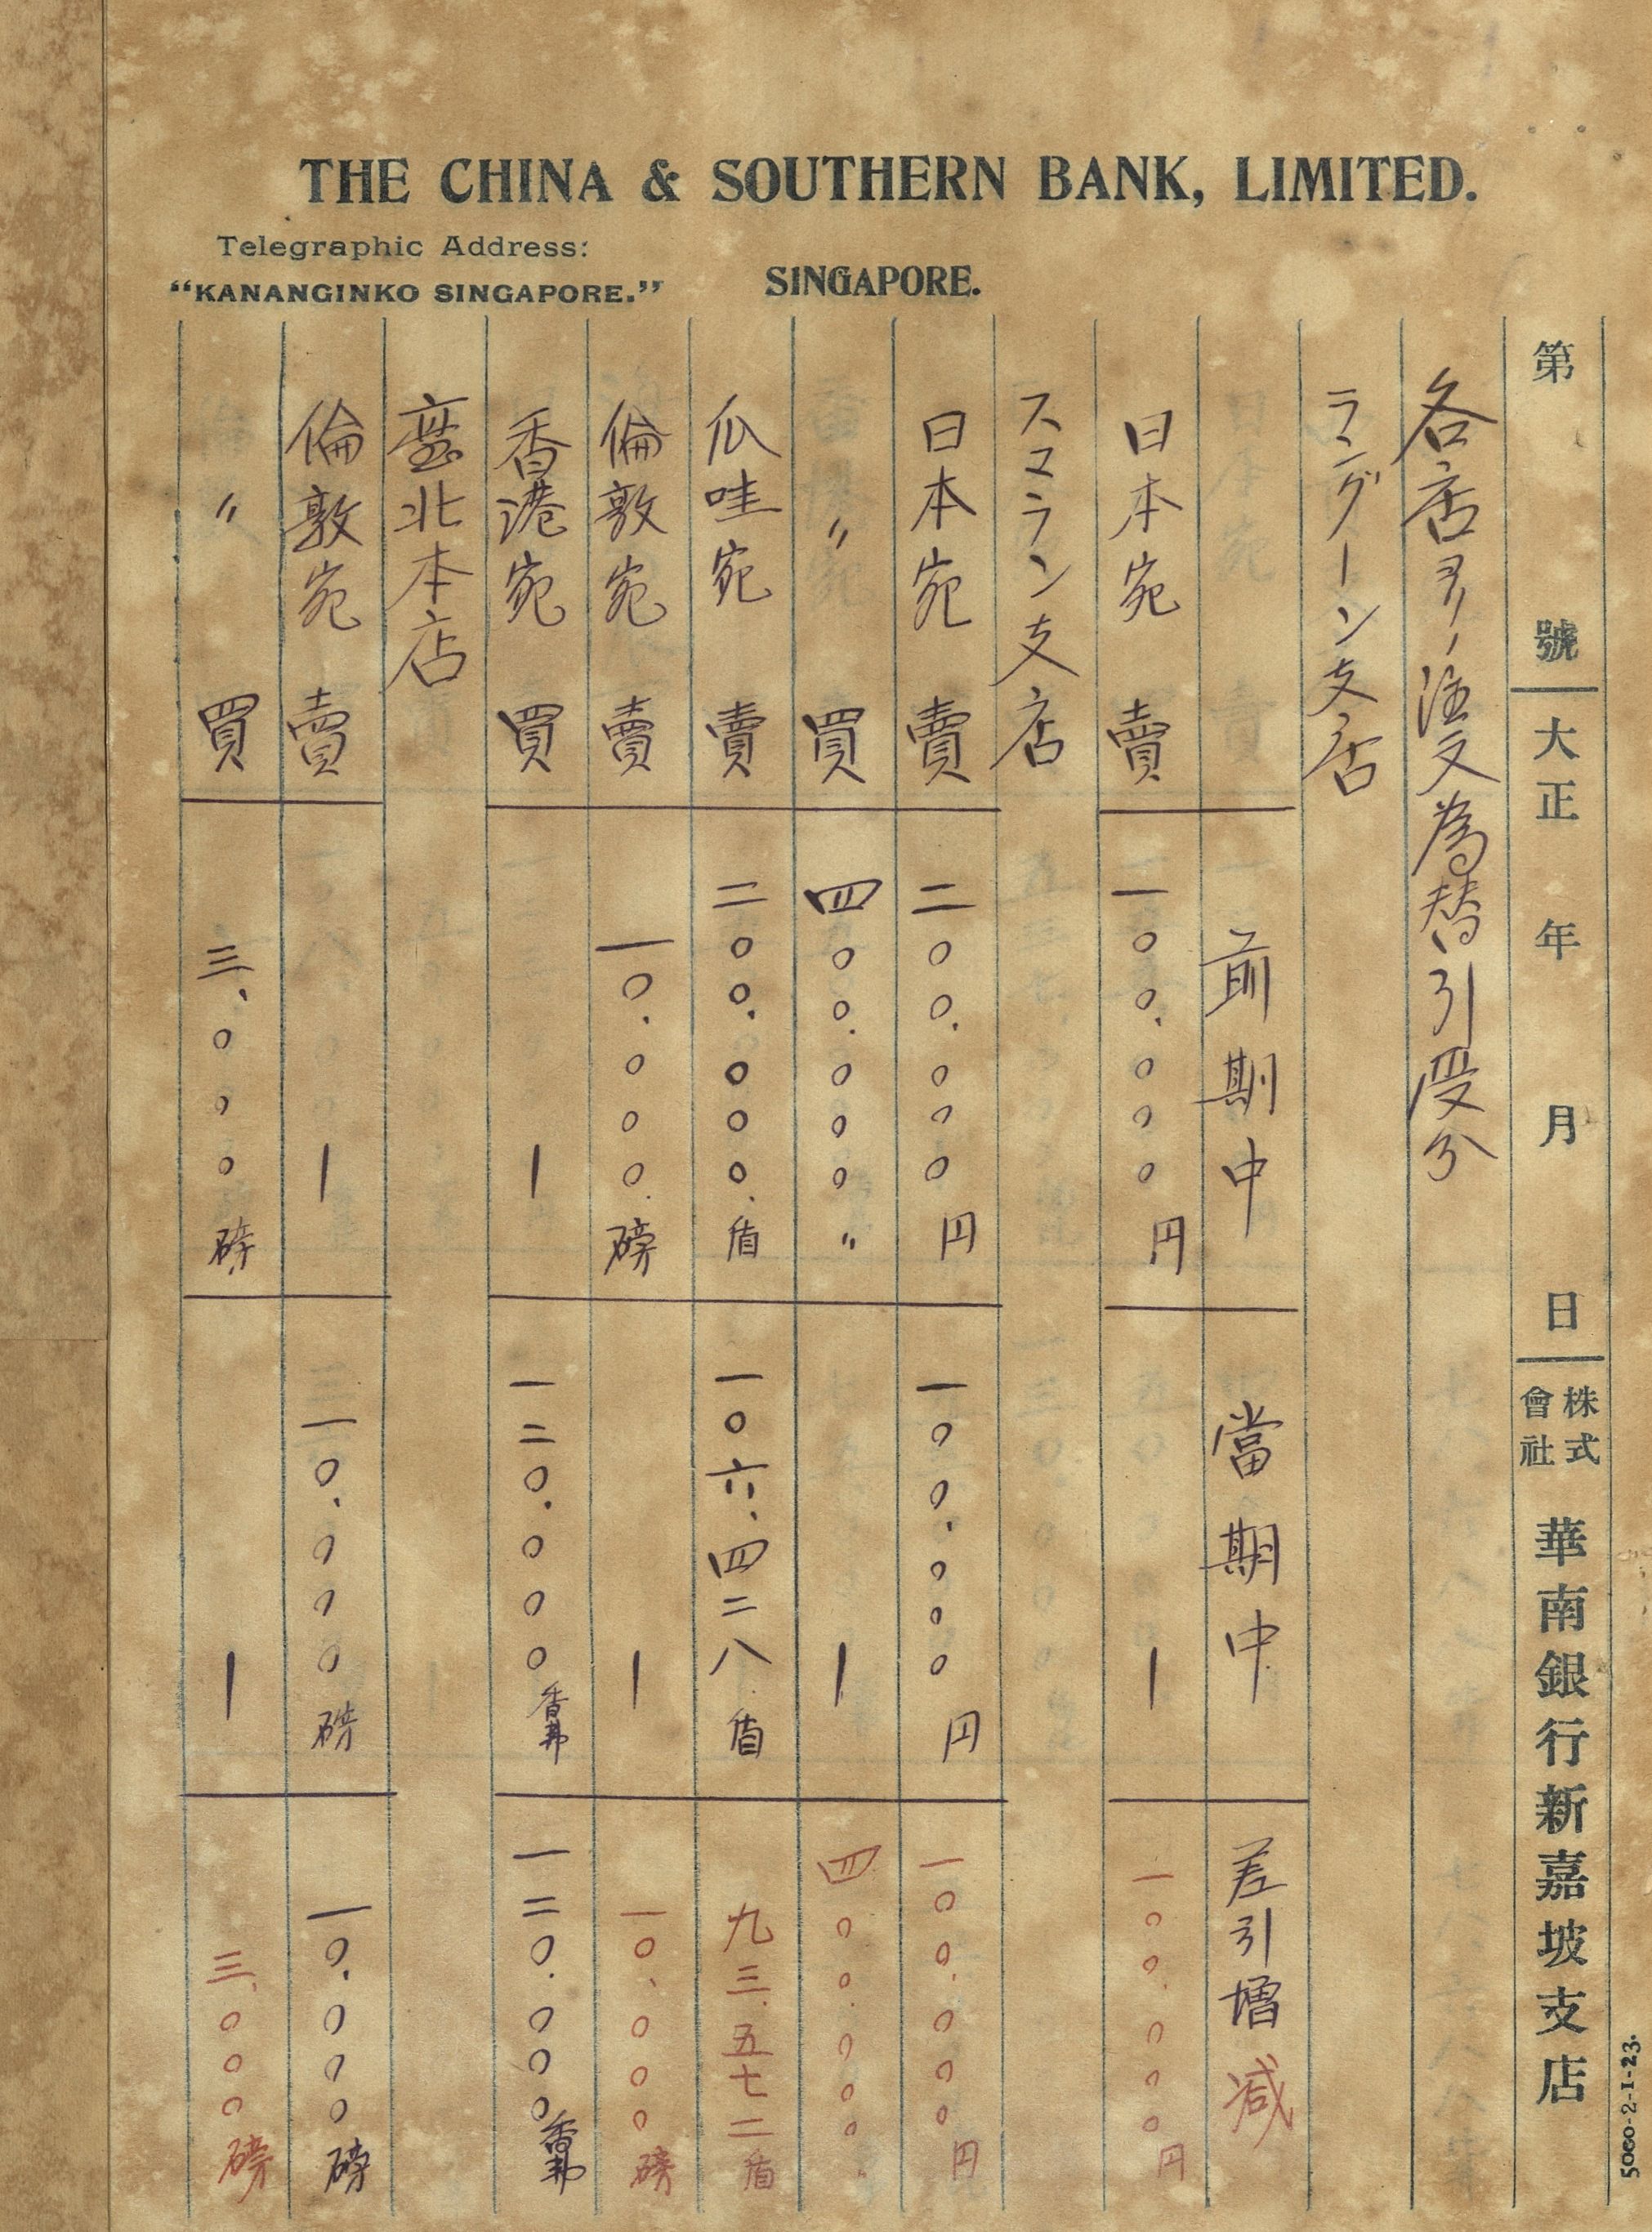 THE CHINA & SOUTHERN BANK, LIMITED.
Telegraphic Address:
"KANANGINKO SINGAPORE."
SINGAPORE.
第 號 大正 年 月 日 株式會社 華南銀行新嘉坡支店
各店ヨリノ注文為替引受分
ラングーン支店
前期中 當期中 差引增減
日本宛 賣 一〇〇.〇〇〇円 ー 一〇〇.〇〇〇円
スマラン支店
日本宛 賣 二〇〇.〇〇〇円 一〇〇.〇〇〇円 一〇〇.〇〇〇円
〃 買 四〇〇.〇〇〇〃 ー 四〇〇.〇〇〇〃
爪哇宛 賣 二〇〇.〇〇〇.盾 一〇六.四二八.盾 九三.五七二盾
倫敦宛 賣 一〇.〇〇〇.磅 ー 一〇.〇〇〇磅
香港宛 買 ー 一二〇.〇〇〇香弗 一二〇.〇〇〇香弗
臺北本店
倫敦宛 賣 ー 一〇.〇〇〇磅 一〇.〇〇〇磅
〃 買 三.〇〇〇磅 ー 三.〇〇〇磅
5000-2-1-23.